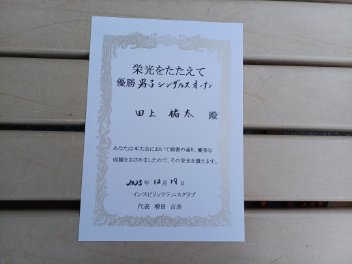 栄光をたたえて
優勝 男子シングルスオープン
田上 裕太 殿
あなたは本大会において頭書の通り、優秀な
成績をおさめましたので、その栄光を讃えます。
2023年 12月 17日
インスピリッツテニスクラブ
代表 増田 吉彦